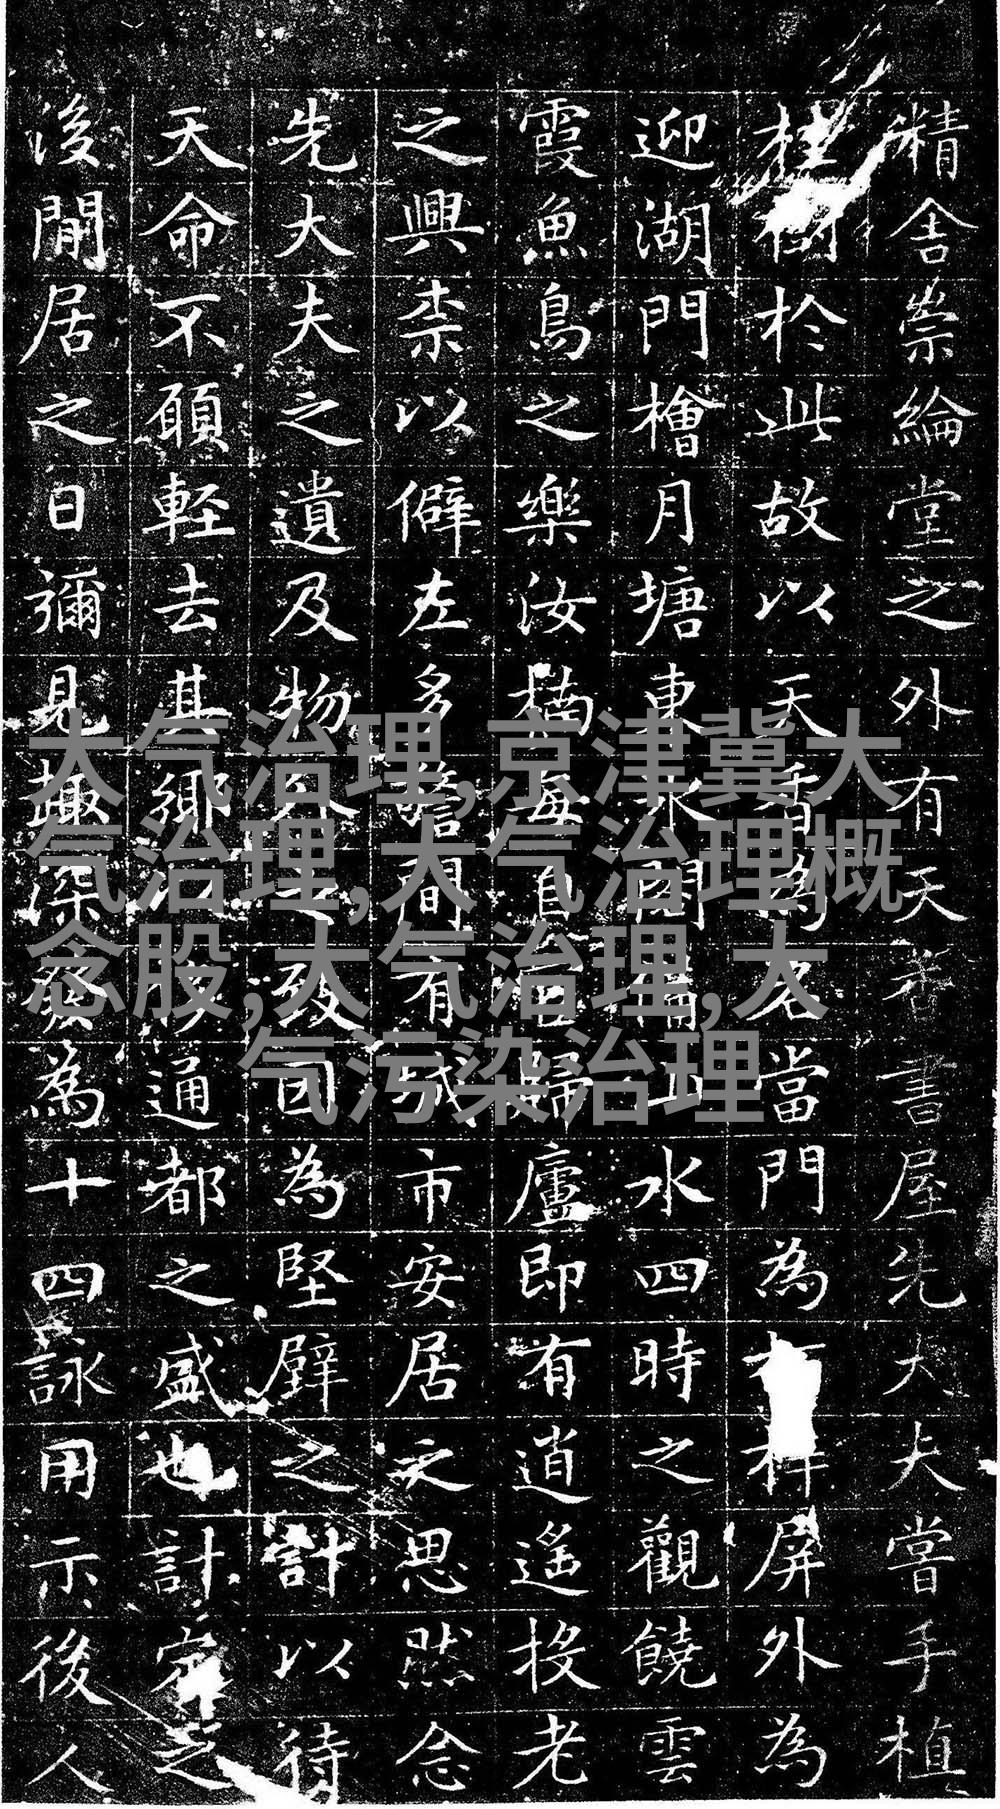 精舍崇綸堂之外有天香書屋先大夫嘗手植
桂樹於此故以天香為名當門為 屏外為
迎湖門檜月塘東水閣 山水四時之觀饒雲
霞魚鳥之樂汝楠每自 歸廬即有逍遙投老
之興柰以僻左多 間有城市安居之思然念
先大夫之遺及物 之致因為堅壁之計以待
天命不願輕去其鄉 移通都之盛也計定之
後閒居之日彌見趣深 為十四詠用示後人
大气治理,京津冀大
气治理,大气治理概
念股,大气治理,大
气污染治理